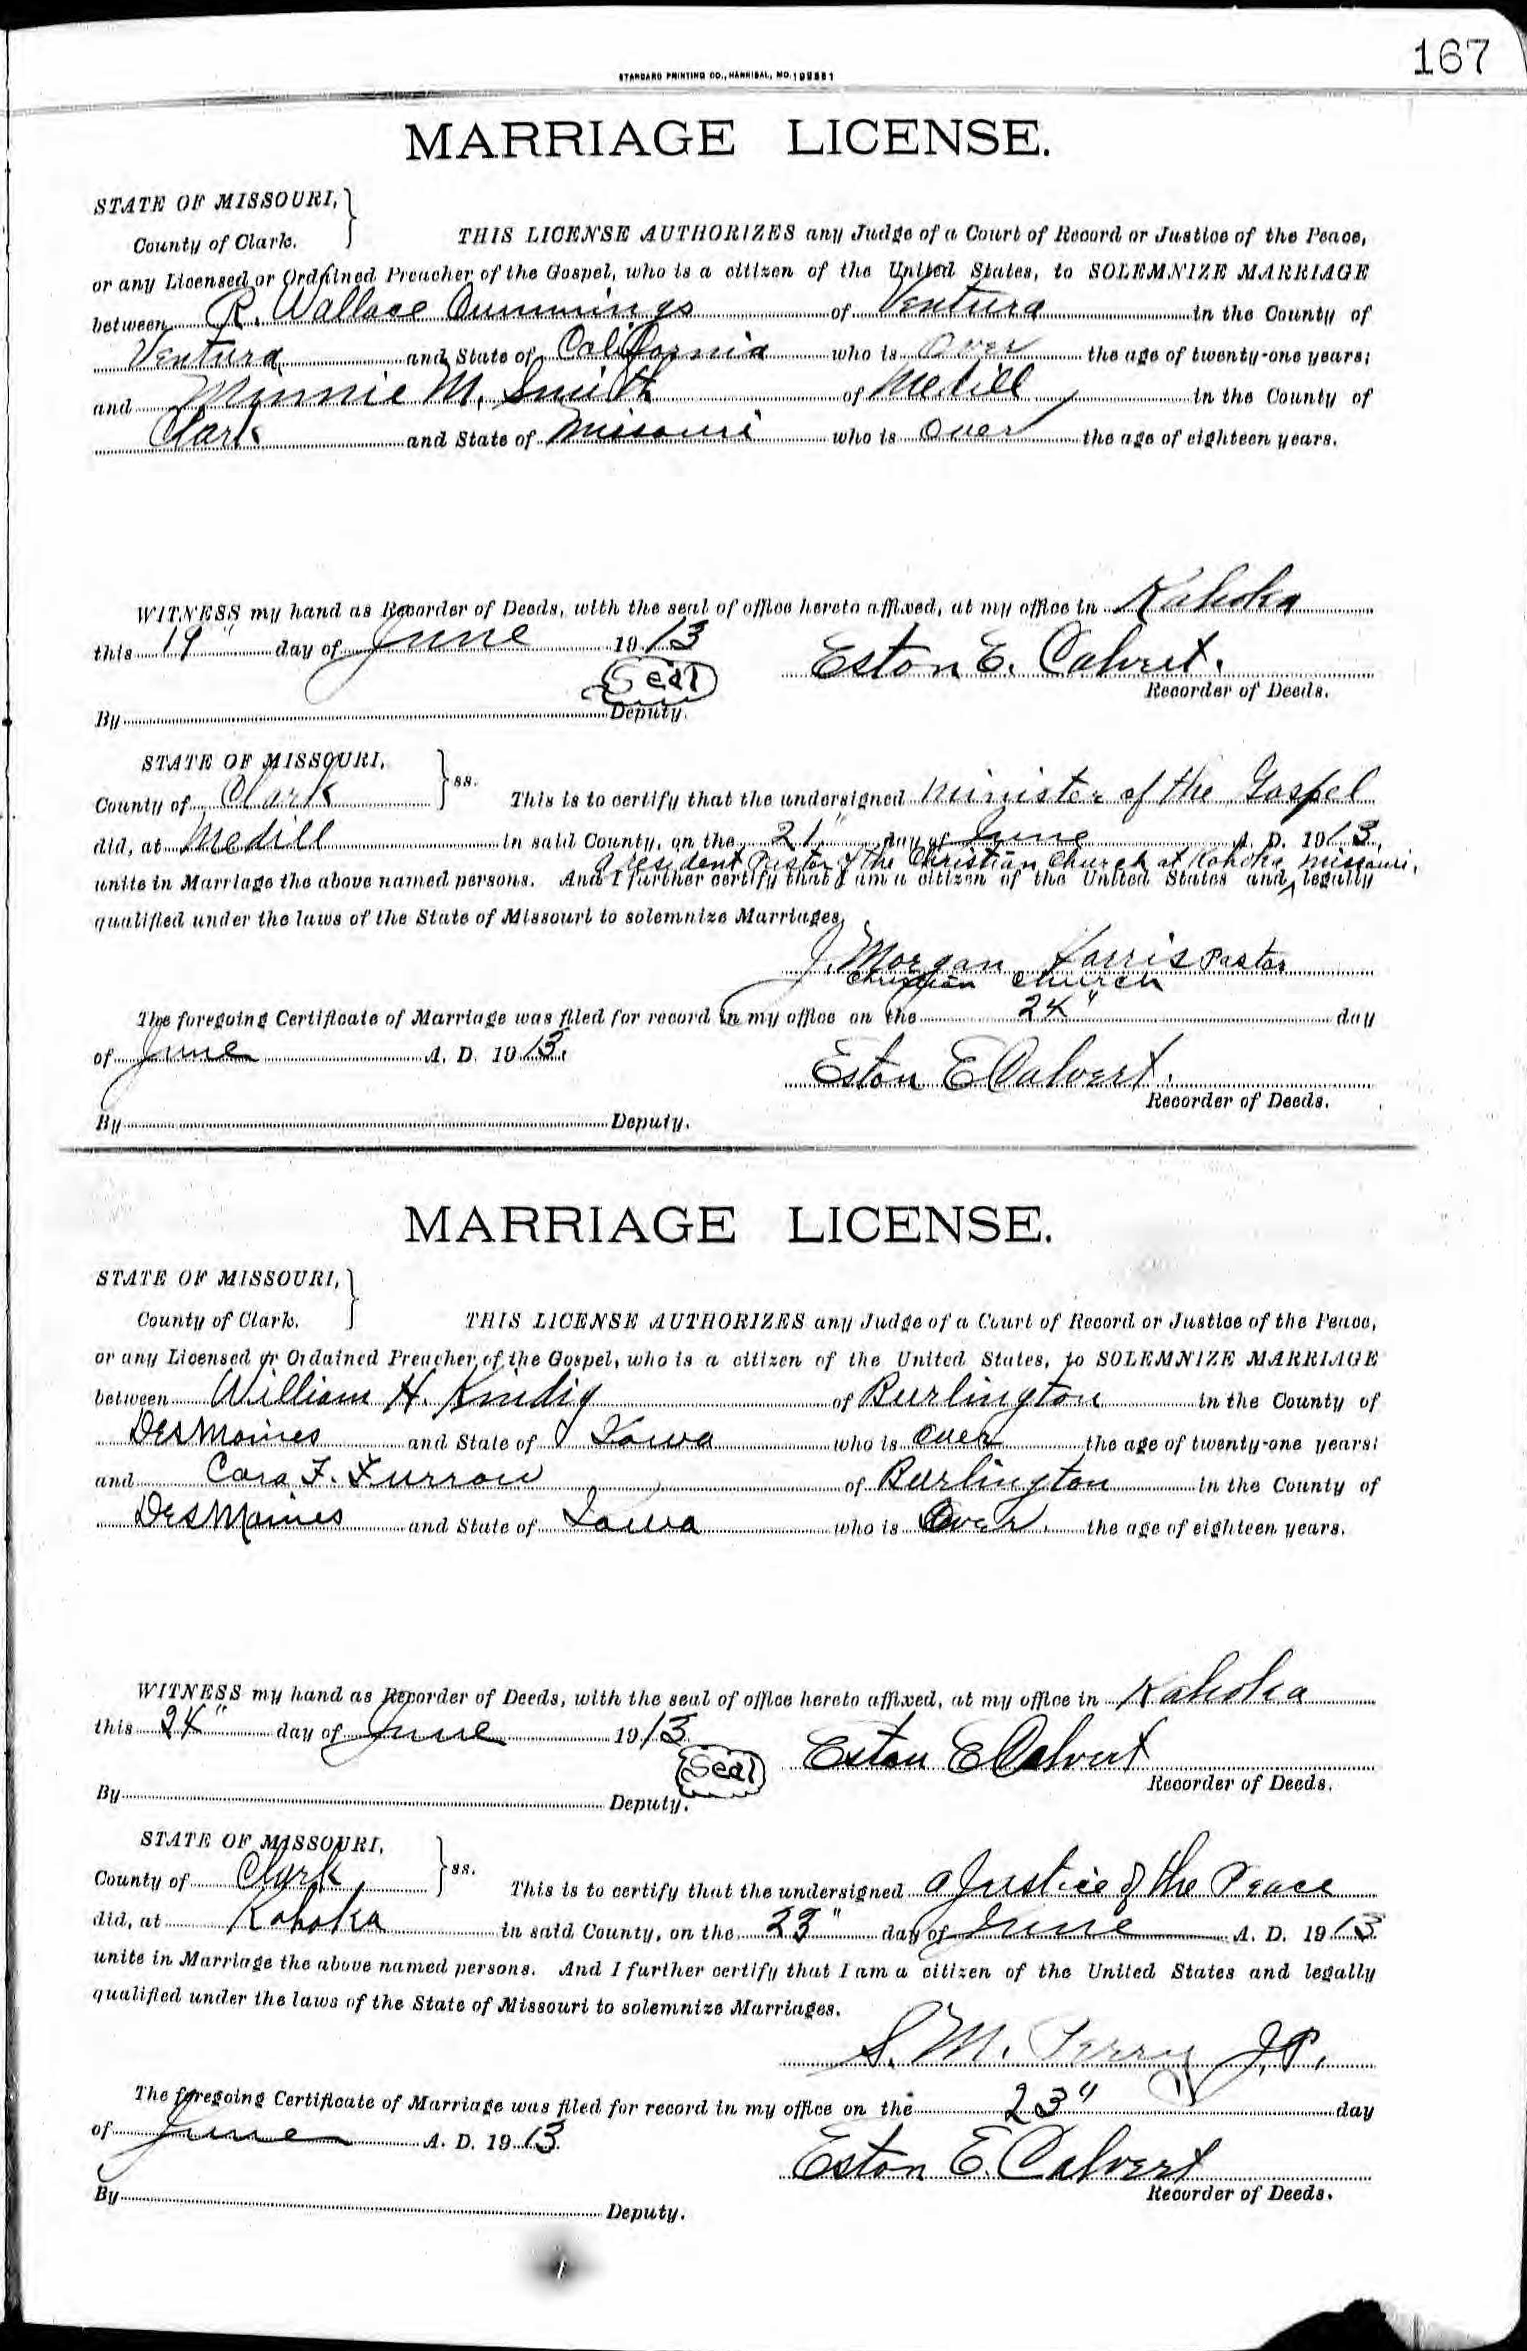 167
STANDARD PRINTING CO., HANNIBAL, MO.
MARRIAGE LICENSE.
STATE OF MISSOURI,
County of Clark.
THIS LICENSE AUTHORIZES any Judge of a Court of Record or Justice of the Peace,
or any Licensed or Ordained Preacher of the Gospel, who is a citizen of the United States, to SOLEMNIZE MARRIAGE
between R. Wallace Cummings of Ventura in the County of
Ventura and State of California who is Over the age of twenty-one years;
and Minnie M. Smith of Medill in the County of
Clark and State of Missouri who is Over the age of eighteen years.
WITNESS my hand as Recorder of Deeds, with the seal of office hereto affixed, at my office in Kahoka
this 19" day of June 1913
Eston E. Calvert.
Seal
Recorder of Deeds.
By Deputy.
STATE OF MISSOURI,
County of Clark ss. This is to certify that the undersigned Minister of the Gospel
did, at Medill in said County, on the 21" day of June A. D. 1913,
a resident Pastor of the Christian Church at Kahoka Missouri,
unite in Marriage the above named persons. And I further certify that I am a citizen of the United States and legally
qualified under the laws of the State of Missouri to solemnize Marriages.
J. Morgan Harris Pastor
Christian Church
The foregoing Certificate of Marriage was filed for record in my office on the 24" day
of June A. D. 1913.
Eston E Calvert.
Recorder of Deeds.
By Deputy.
MARRIAGE LICENSE.
STATE OF MISSOURI,
County of Clark.
THIS LICENSE AUTHORIZES any Judge of a Court of Record or Justice of the Peace,
or any Licensed or Ordained Preacher of the Gospel, who is a citizen of the United States, to SOLEMNIZE MARRIAGE
between William H. Kindig of Burlington in the County of
DesMoines and State of Iowa who is Over the age of twenty-one years;
and Cora F. Furrow of Burlington in the County of
DesMoines and State of Iowa who is Over. the age of eighteen years.
WITNESS my hand as Recorder of Deeds, with the seal of office hereto affixed, at my office in Kahoka
this 24" day of June 1913.
Eston E Calvert
Seal
Recorder of Deeds.
By Deputy.
STATE OF MISSOURI,
County of Clark ss. This is to certify that the undersigned a Justice of the Peace
did, at Kahoka in said County, on the 23" day of June A. D. 1913
unite in Marriage the above named persons. And I further certify that I am a citizen of the United States and legally
qualified under the laws of the State of Missouri to solemnize Marriages.
S. M. Perry J.P.
The foregoing Certificate of Marriage was filed for record in my office on the 23" day
of June A. D. 1913.
Eston E. Calvert
Recorder of Deeds.
By Deputy.